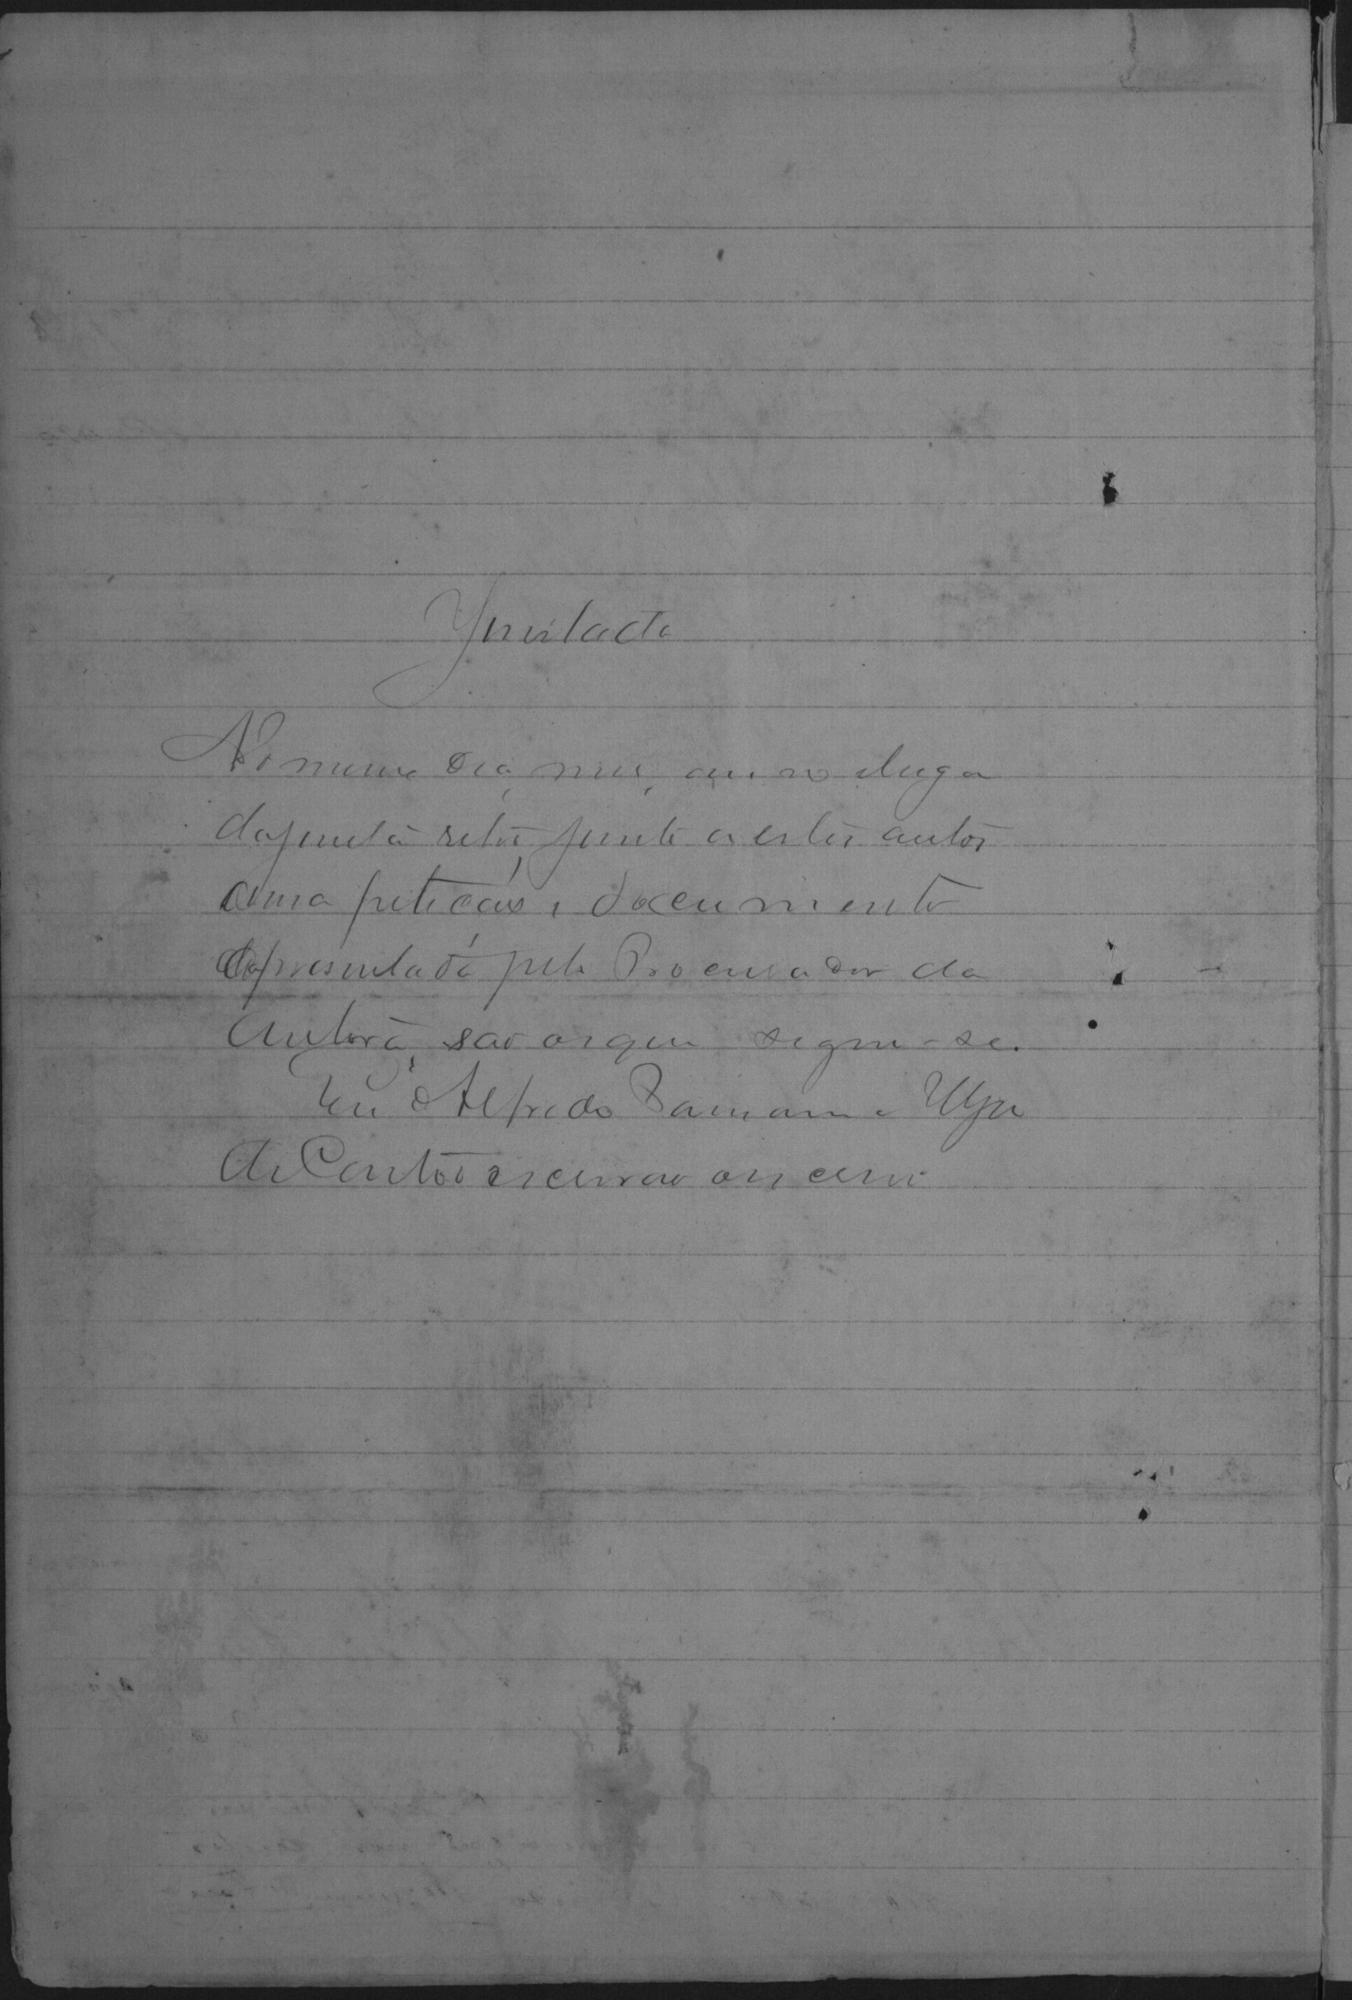 Juntada
No mesmo dia, mes, anno e lugar
da junta retro, junto a estes autos
uma petição e documento
apresentada pelo Procurador da
Autora, são os que seguem-se.
Eu Alfredo
de Cantos escrivão o escrevi